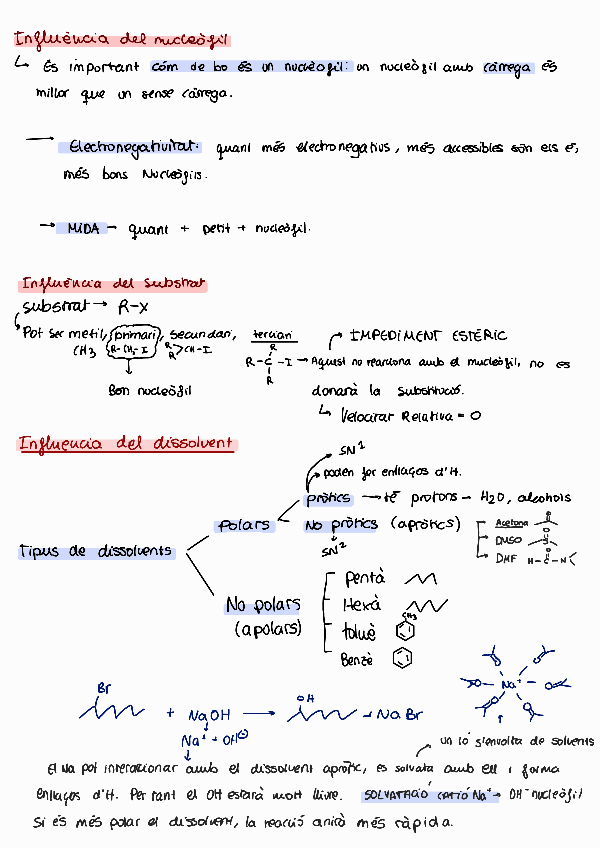 Influència del nucleòfil
↳ És important cóm de bo és un nucleòfil: un nucleòfil amb càrrega és
millor que un sense càrrega.
→ Electronegativitat: quant més electronegatius, més accessibles són els e,
més bons Nucleòfils.
→ MIDA → quant + petit + nucleòfil.
Influència del substrat
substrat → R-X
Pot ser metil, primari, secundari, terciari
CH3 R-CH2-I R R >CH-I R R-C-I R
→ IMPEDIMENT ESTÈRIC
→ Aquest no reacciona amb el nucleòfil, no es
Bon nucleòfil
donarà la substitució.
↳ Velocitat Relativa = 0
Influencia del dissolvent
SN1
poden fer enllaços d'H.
pròtics → té protons → H2O, alcohols
Polars
No pròtics (apròtics)
SN2
Acetona O
DMSO O S
DMF H-C-N O
Tipus de dissolvents
No polars
(apolars)
Pentà
Hexà
toluè CH3
Benzè
Br
+ NaOH → OH + NaBr
Na+ + OH⊖
Na+
un ió s'envolta de solvents
El Na pot interaccionar amb el dissolvent apròtic, es solvata amb ell i forma
enllaços d'H. Per tant el OH estarà molt lliure. SOLVATACIÓ CATIÓ Na+ → OH- nucleòfil
Si és més polar el dissolvent, la reacció anirà més ràpida.